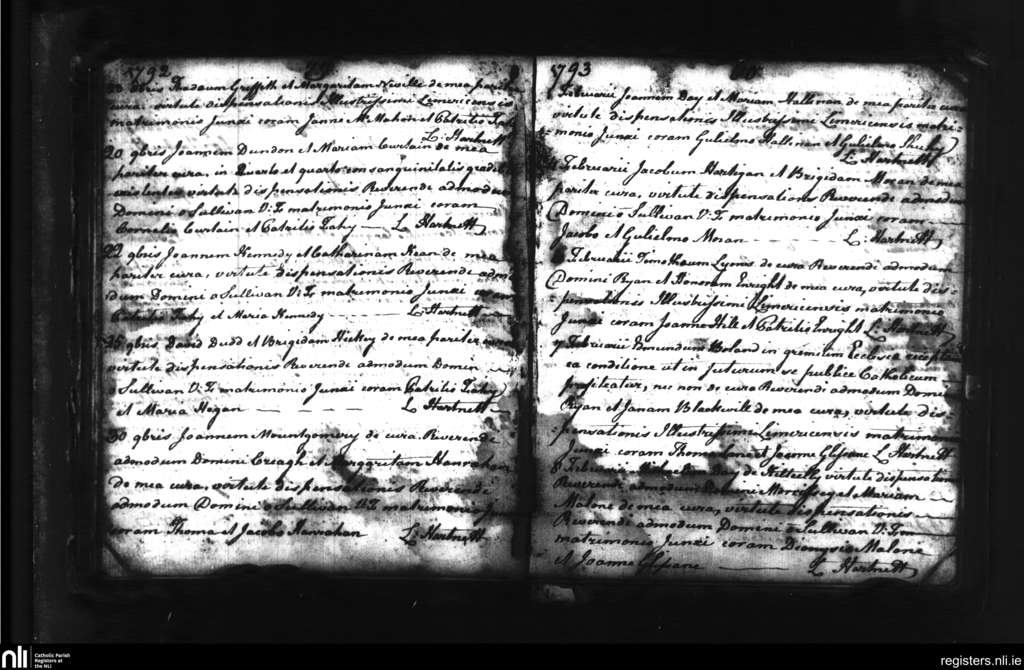 1792
9bris Thadaum Griffith et Margaritam Neville de mea pariter
cura, virtute dispensationis Illustrissimi Limericensis
matrimonio Junxi coram Janne McMahon et Patritio
L: Hartnett
20 9bris Joannem Dundon et Mariam Curtain de mea
pariter cura, in Quarto et quarto consanguinitatis gradu
virtute dispensationis Reverende admodum
Domini o Sullivan V:G matrimonio Junxi coram
Cornelio Curtain et Patritio Fahy — L Hartnett
22 9bris Joannem Kennedy et Catharinam Kean de mea
pariter cura, virtute dispensationis Reverende adm-
-dum Domini o Sullivan V:G matrimonio Junxi coram
Patritio Fahy et Maria Kennedy — L: Hartnett
9bris David Dudd et Brigidam Hickey de mea pariter cura
virtute dispensationis Reverende admodum Domini
Sullivan V:G matrimonio Junxi coram Patritio Fahy
et Maria Hogan — — — — L Hartnett
30 9bris Joannem Mountgomery de cura Reverende
admodum Domini Creagh et Margaritam Hanrahan
de mea cura, virtute dispensationis Reverende
admodum Domini o Sullivan V:G matrimonio
coram Thoma et Jacobo Hanrahan L: Hartnett
1793
Februarii Joannem Day et Mariam Hallinan de mea pariter cura
virtute dispensationis Illustrissimi Limericensis matri-
monio Junxi coram Gulielmo Hallinan et Gulielmo Shuhy
L Hartnett
Februarii Jacobum Hartigan et Brigidam Moran de mea
pariter cura, virtute dispensationis Reverende admodum
Domini o Sullivan V:G matrimonio Junxi coram
Jacobo et Gulielmo Moran — — — L: Hartnett
Februarii Timotheum Lyons de cura Reverende admodum
Domini Ryan et Honoram Enright de mea cura, virtute dis-
-pensationis Illustrissimi Limericensis matrimonio
Junxi coram Joanne Hill et Patritio Enright L Hartnett
7 Februarii Edmundum Boland in gremium Ecclesiæ
ea conditione ut in futurum se publice Catholicum
profiteatur, nec non de cura Reverendi admodum Domini
Ryan et Janam Blackwill de mea cura, virtute dis-
-pensationis Illustrissimi Limericensis matrimonio
Junxi coram Thoma Lane et Joanne Glissane L Hartnett
8 Februarii Day de Kiltilly virtute dispensationis
Reverende admodum Domini et Mariam
Malone de mea cura, virtute dispensationis
Reverende admodum Domini o Sullivan V:G
matrimonio Junxi coram Dionysio Malone
et Joanne Glissane — L Hartnett
nli
Catholic Parish
Registers at
the NLI
registers.nli.ie